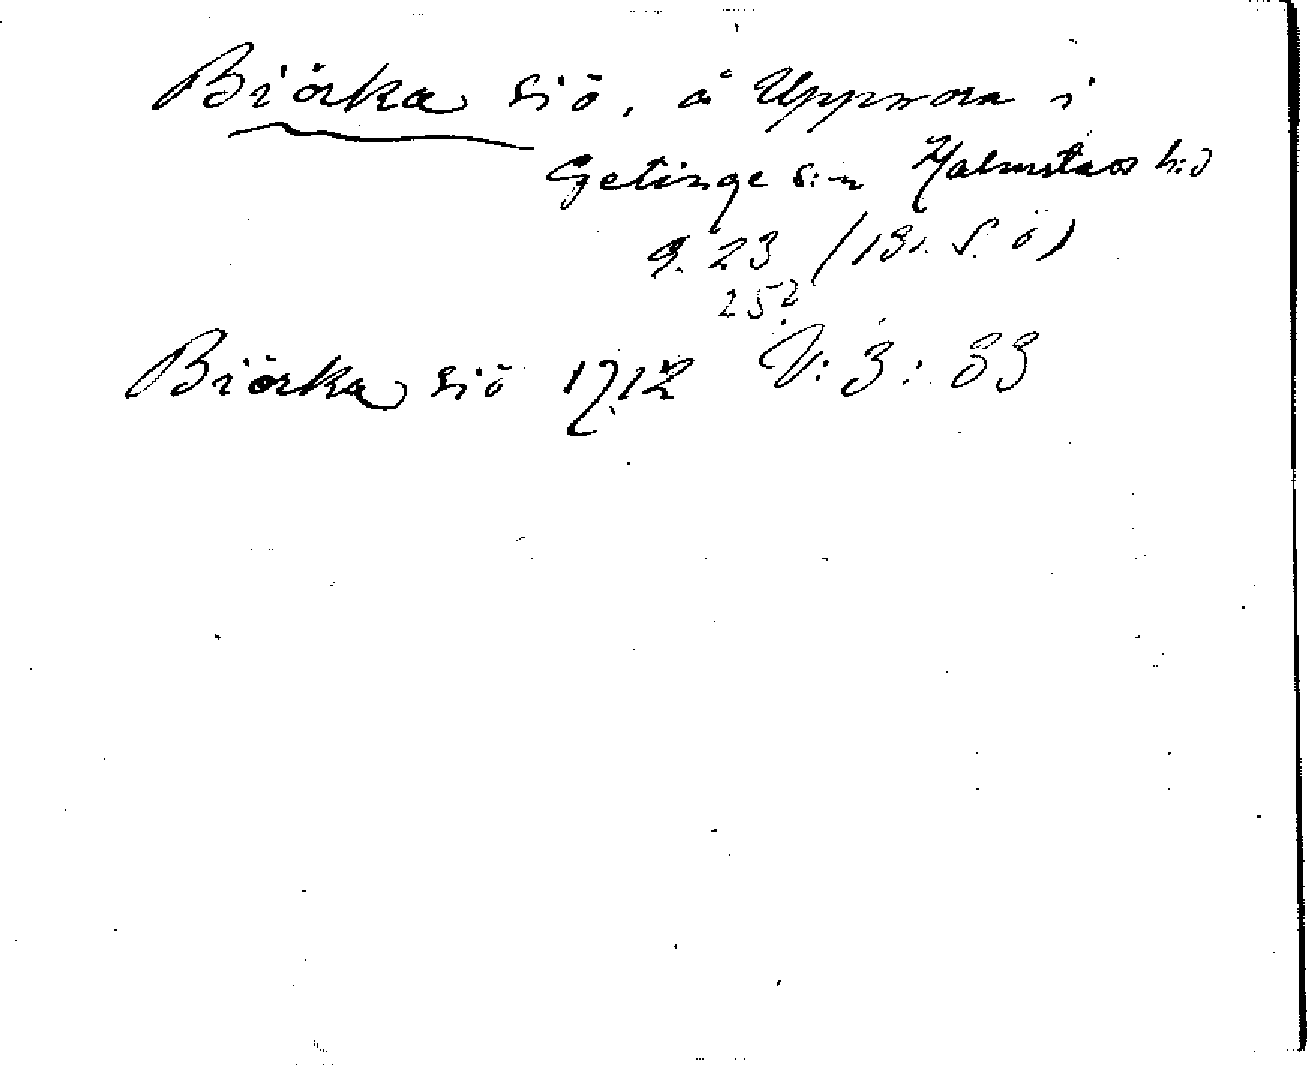 Biörka siö, å Uppnora i
Getinge s:n Halmstads h:d
9. 23 (131. S. ö)
25?
Biörka siö 1712 V: 3: 33